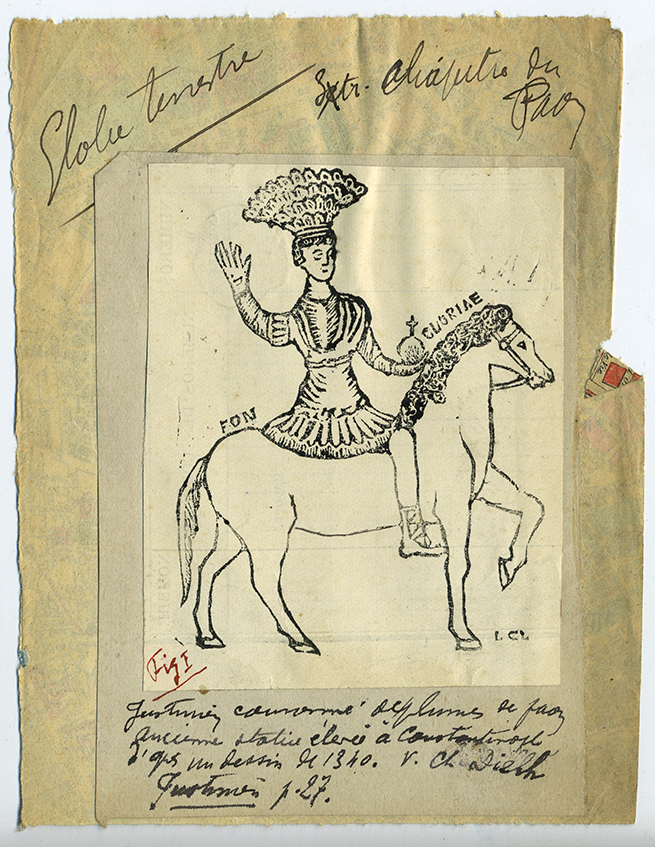 Globe terrestre
Extr. Chapitre du
Paon
GLORIAE
FON
L CL
Fig I
Justinien couronné de plumes de paon
ancienne statue élevée à Constantinople
d'après un dessin de 1340. V. Ch. Diehl
Justinien p. 27.